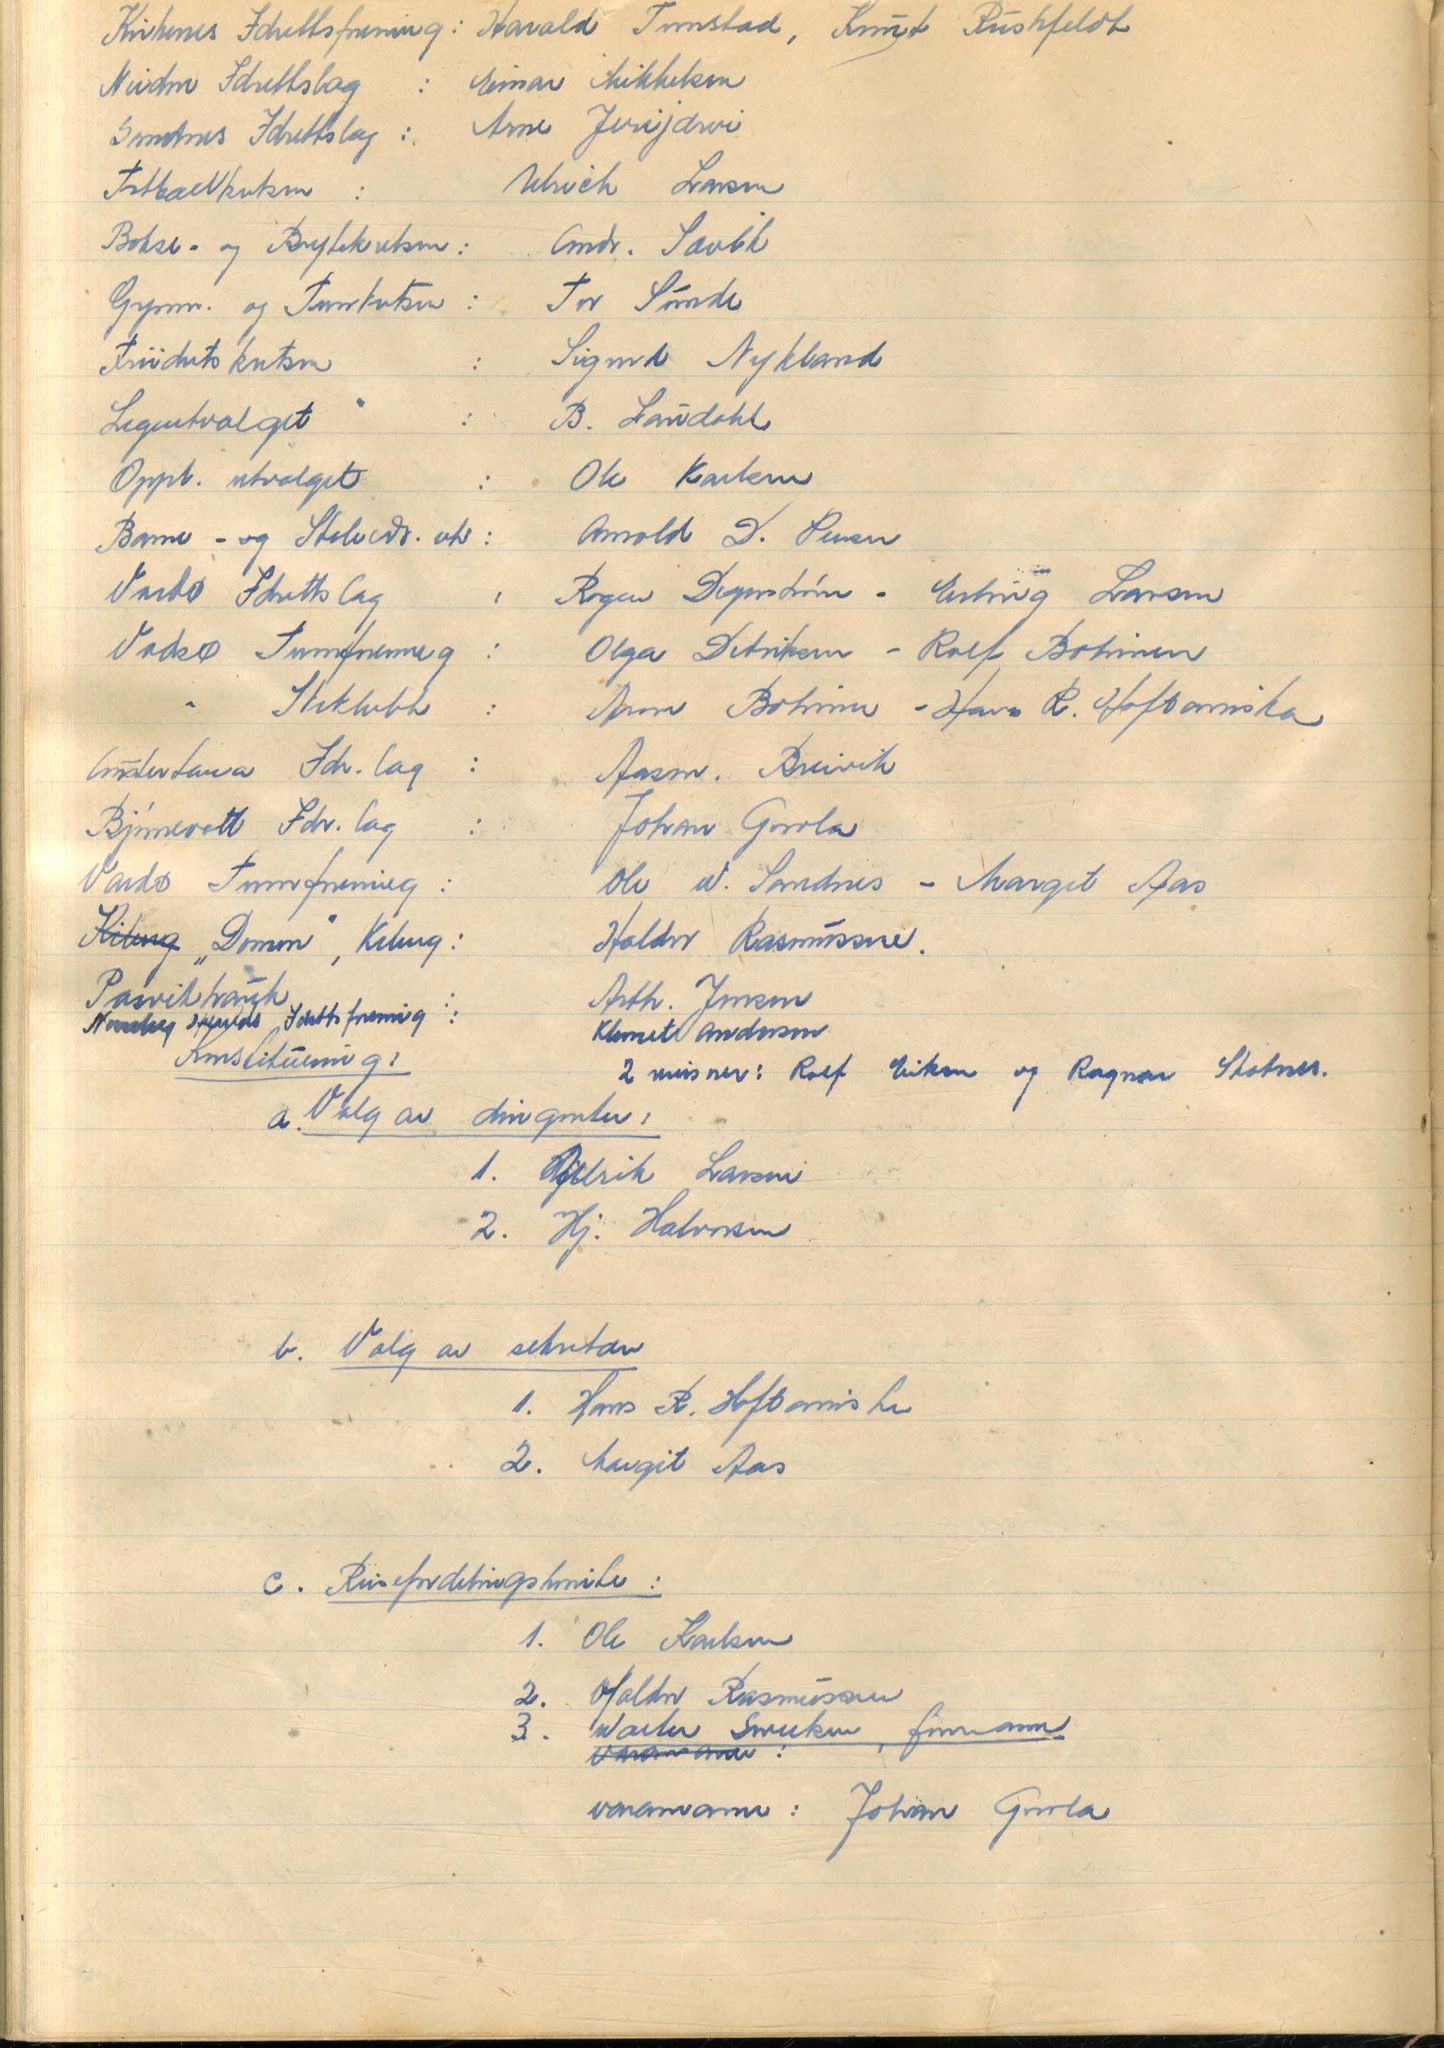 Kirkenes Idrettsforening: Harald Tunstad, Knut Rushfeldt
Neiden Idrettslag : Einar Mikkelsen
Sandnes Idrettslag : Arne
Fotballkretsen : Ulrich Larsen
Bokse- og Brytekretsen : Andr. Savik
Gymn. og Turnkretsen : Tor Sunde
Friidretskretsen : Sigurd Nykland
Legeutvalget : B. Laudahl
Oppl. utvalget : Ole Karlsen
Barne- og Skoleidr. utv : Arnold D.
Vardø Idrettslag : Roger - Erling Larsen
Vadsø Turnforening : Olga Detriksen - Rolf Bohinen
" Skiklubb : Arne Bohinen - Hans R. Hoftaniska
Austertana Idr. lag : Aasm. Breivik
Bjørnevatt Idr. lag : Johan Gorola
Vardø Turnforening : Ole W. Sandnes - Margit Aas
Kiberg "Domen", Kiberg : Haldor Rasmussen.
Pasviktrausk : Arth. Jensen
Nesseby Idrettsforening : Klemet Andersen
Konstituering: 2 revisorer: Rolf Eriksen og Ragnar Skotnes.
a. Valg av dirigenter:
1. Ulrik Larsen
2. Hj. Halvorsen
b. Valg av sekretær
1. Hans R. Hoftaniska
2. Margit Aas
c. Reisefordelingskomite :
1. Ole Karlsen
2. Haldor Rasmussen
3. Walter , formann
varamann :
varamann : Johan Gorola